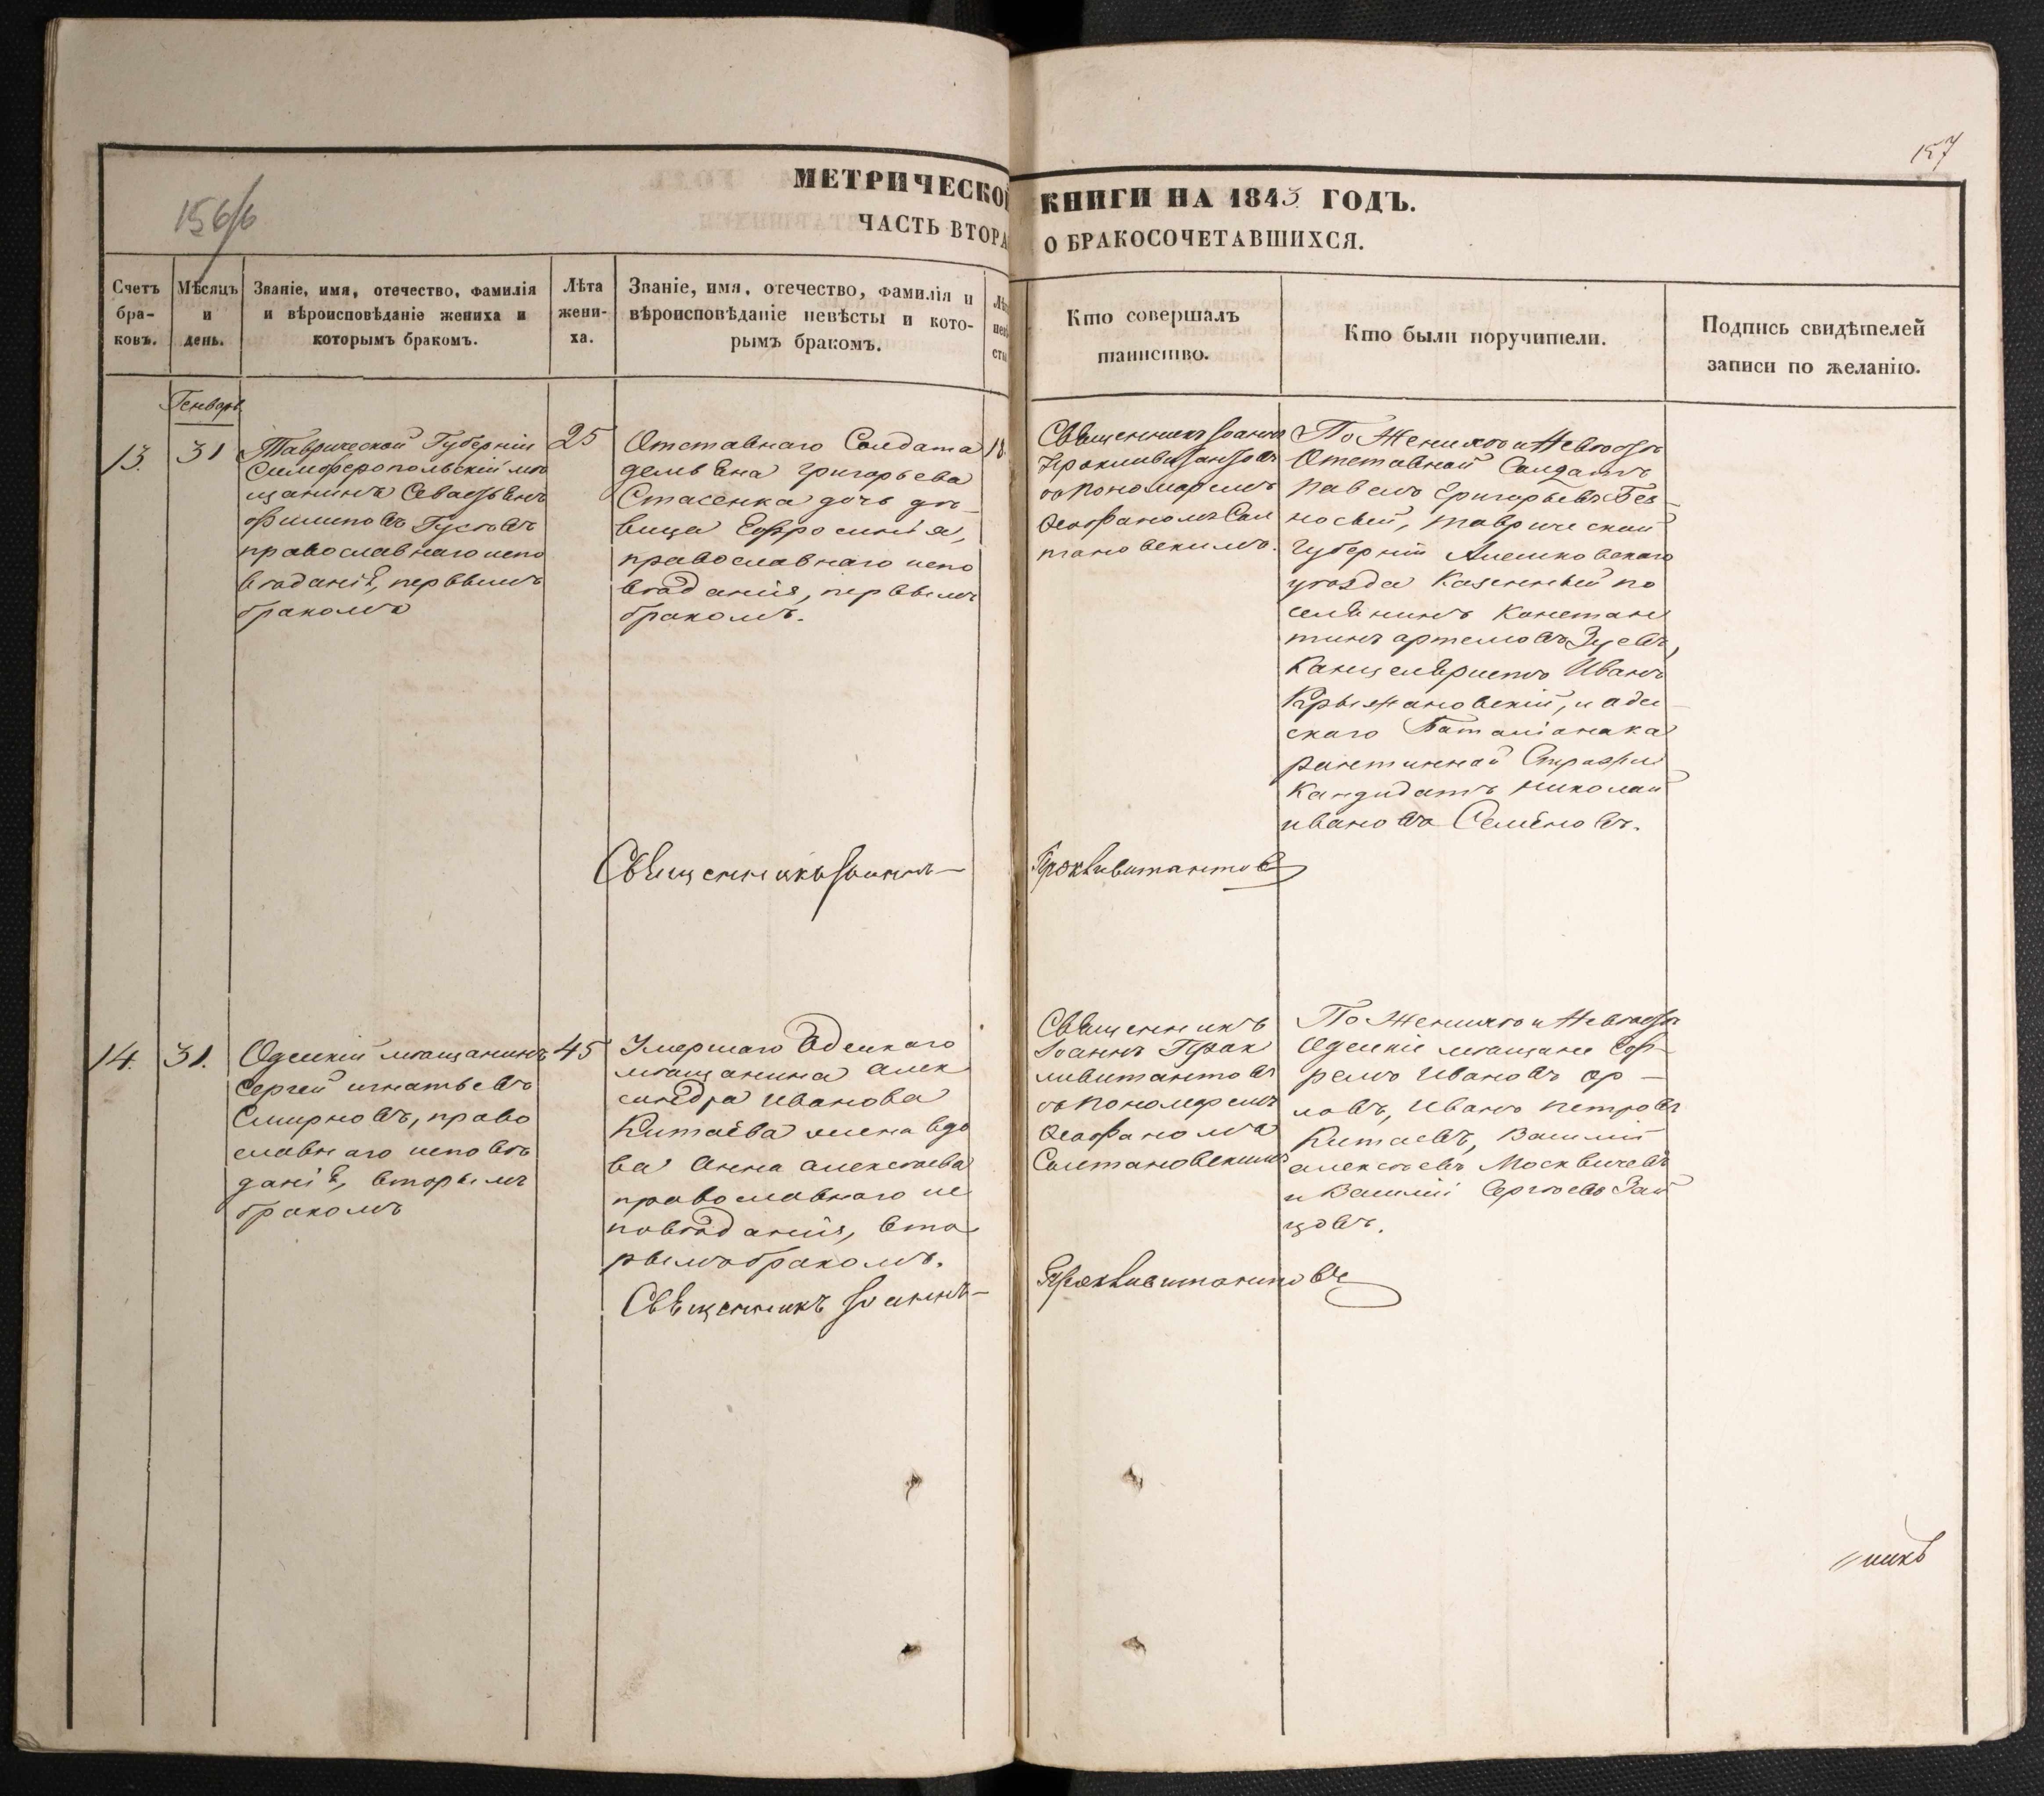 157
156/б
МЕТРИЧЕСКОЙ КНИГИ НА 1843 ГОДЪ.
ЧАСТЬ ВТОРА О БРАКОСОЧЕТАВШИХСЯ.
Счетъ бра-ковъ.
Мѣсяцъ и день.
Званіе, имя, отечество, фамилія
и вѣроисповѣданіе жениха и
которымъ бракомъ.
Лѣта
жени-
ха.
Званіе, имя, отечество, фамилія и
вѣроисповѣданіе невѣсты и кото-
рымъ бракомъ.
Кто совершалъ
таинство.
Кто были поручители.
Подпись свидѣтелей
записи по желанію.
Генварь
13.
31
Таврической Губерніи
Симферопольскій мѣ
щанинъ Севастьянъ
Филиповъ Гусевъ
православнаго испо
вѣданія, первымъ
бракомъ
25
Отставнаго Солдата
демьяна Григорьева
Стасенка дочь дѣ-
вица Ефросинія,
православнаго испо
вѣданія, первымъ
бракомъ.
18
Священникъ Іоаннъ
съ Пономаремъ
Ѳеофаномъ Сол
тановскимъ.
По Женихѣ и Невѣстѣ
Отставной Солдатъ
Павелъ Григорьевъ Без-
носый, таврической
Губерніи Алешковскаго
уѣзда Казенный по
селянинъ Констан
тинъ артемовъ Зуевъ,
Канцеляристъ Иванъ
Крыжановскій, и оде
скаго Баталіона ка
рантинной Стражи
Кандидатъ Николай
ивановъ Семёновъ.
Священникъ Іоаннъ Проклевитантовъ
14.
31.
Одескій мѣщанинъ
Сергей игнатьевъ
Смирновъ, право
славнаго исповѣ
данія, вторымъ
бракомъ
45
Умершаго Одескаго
мѣщанина алек
сандра иванова
Китаева жена вдо
ва Анна алексѣева
православнаго ис
повѣданія, вто
рымъ бракомъ.
Священникъ
Іоаннъ Прок
левитантовъ
съ Пономаремъ
Ѳеофаномъ
Солтановскимъ
По Женихѣ и Невѣстѣ
Одескіе мѣщане Еф-
ремъ Ивановъ ор-
ловъ, Иванъ петровъ
Китаевъ, Василій
алексѣевъ Москвичевъ
и Василій Сергѣевъ Зай
цовъ.
Священникъ Іоаннъ Проклевитантовъ